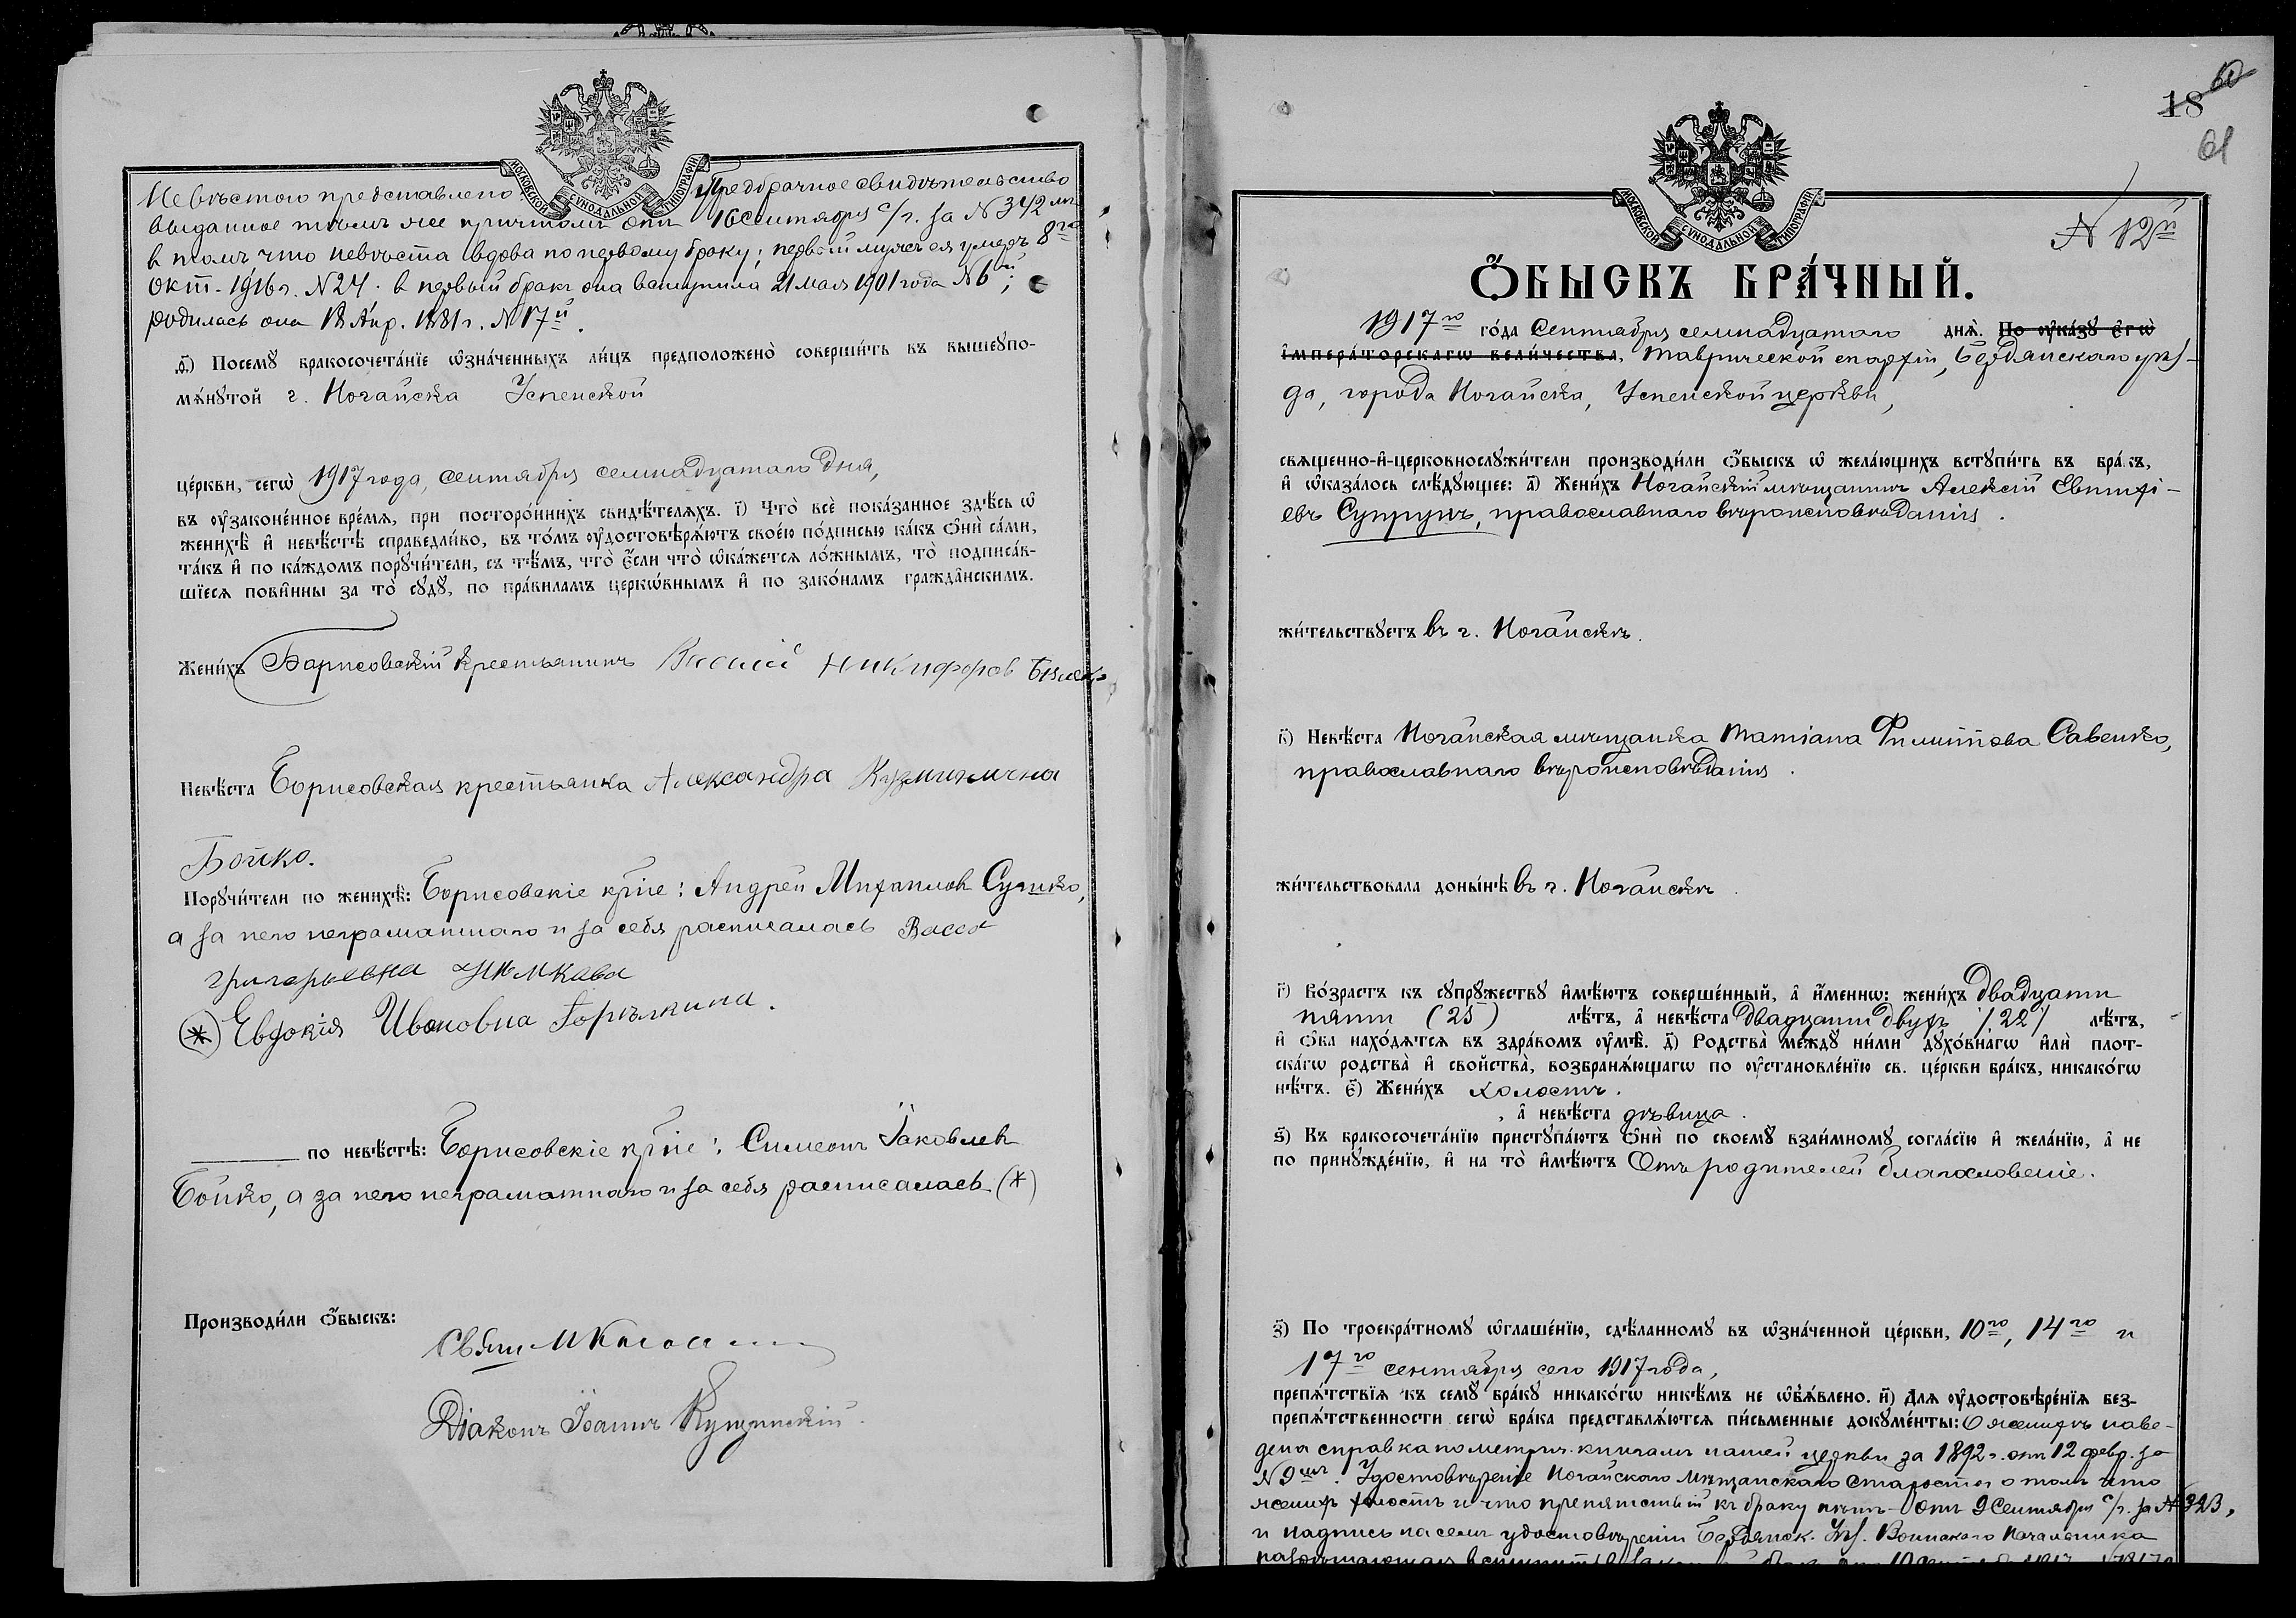 МОСКОВСКОЙ СѴНОДАЛЬНОЙ ТИПОГРАФІИ
Невѣстою представлено Предбрачное свидѣтельство
выданное тѣмъ же причтомъ отъ 16 Сентября с/г. за N 342 мъ
в томъ что невѣста вдова по первому браку; первый мужъ ея умеръ 8го
окт. 1916 г. N 24. в первый бракъ она вступила 21 мая 1901 года N 6й;
родилась она 18 Апр. 1881 г. N 17й.
д҃) Посемꙋ бракосочета́нїе ѡзна́ченныхъ ли́цъ предположено̀ соверши́ть въ вышеꙋпо-
мѧ́нꙋтой г. Ногайска Успенской
це́ркви, сегѡ̀ 1917 года, сентября семнадцатаго дня,
въ ᲂу҆зако́ненное вре́мѧ, при посторо́ннихъ свидѣ́телѧхъ. і҃) Что̀ всѐ пока́занное здѣ́сь ѡ҆
женихѣ̀ и҆ невѣ́стѣ справедли́во, въ то́мъ ᲂу҆достовѣрѧ́ютъ свое́ю по́дписью ка́къ ѻ҆нѝ са́ми,
та́къ и҆ по ка́ждомъ порꙋчи́тели, съ тѣ́мъ, что̀ є҆́сли что̀ ѡ҆ка́жетсѧ ло́жнымъ, то̀ подписа́в-
шїесѧ пови́нны за то̀ сꙋдꙋ̀, по пра́виламъ церко́внымъ и҆ по зако́намъ гражда́нскимъ.
Жени́хъ Барисовскій крестьянинъ Васлій Никифоров
Невѣ́ста Борисовская крестьянка Александра Кузминична
Бойко.
Порꙋчи́тели по женихѣ̀: Борисовскіе кр҃не: Андрей Михаилов Сушко,
а за него неграматнаго и за себя расписалась Васса
григорьевна
(*) Евдокія Ивановна Горѣлкина.
по невѣ́стѣ: Борисовскіе кр҃не: Симеонъ Іаковлевъ
Бойко, а за него неграматнаго и за себя расписалась (*)
Производи́ли ѻ҆́быскъ:
Свящ
Діаконъ Іоаннъ Кущинскій.
60
18
61
МОСКОВСКОЙ СѴНОДАЛЬНОЙ ТИПОГРАФІИ
N 12й
Ѻ҆́БЫСКЪ БРА́ЧНЫЙ.
1917го го́да Сентября семнадцатаго днѧ̀. По ᲂу҆ка́зꙋ є҆гѡ̀
и҆мпера́торскагѡ вели́чества, Таврической епархіи, Бердянскаго уѣз-
да, города Ногайска, Успенской церкви,
свѧще́нно-и҆-церковнослꙋжи́тели производи́ли ѻ҆́быскъ ѡ҆ жела́ющихъ встꙋпи́ть въ бра́къ,
и҆ ѡ҆каза́лось слѣ́дꙋющее: а҃) Жени́хъ Ногайскій мѣщанинъ Алексій Евтихі-
евъ Супрунъ, православнаго вѣроисповѣданія.
жи́тельствꙋетъ въ г. Ногайскѣ.
в҃) Невѣ́ста Ногайская мѣщанка Татіана Филиппова Савенко,
православнаго вѣроисповѣданія.
жи́тельствовала доны́нѣ въ г. Ногайскѣ.
г҃) Во́зрастъ къ сꙋпрꙋ́жествꙋ и҆мѣ́ютъ соверше́нный, а҆ и҆́менно: жени́хъ двадцати
пяти (25) лѣ́тъ, а҆ невѣ́ста двадцати двухъ /22/ лѣ́тъ,
и҆ ѻ҆́ба нахо́дѧтсѧ въ здра́вомъ ᲂу҆мѣ̀. д҃) Родства̀ междꙋ̀ ни́ми дꙋхо́внагѡ и҆лѝ плот-
ска́гѡ родства̀ и҆ сво́йства, возбранѧ́ющагѡ по ᲂу҆становле́нїю св. це́ркви бра́къ, никако́гѡ
нѣ́тъ. є҃) Жени́хъ холостъ.
, а҆ невѣ́ста дѣвица.
ѕ҃) Къ бракосочета́нїю пристꙋпа́ютъ ѻ҆нѝ по своемꙋ̀ взаи́мномꙋ согла́сїю и҆ жела́нїю, а҆ не
по принꙋжде́нїю, и҆ на то̀ и҆мѣ́ютъ Отъ родителей благословеніе.
з҃) По троекра́тномꙋ ѡ҆глаше́нїю, сдѣ́ланномꙋ въ ѡ҆зна́ченной це́ркви, 10го, 14го и
17го сентября сего 1917 года,
препѧ́тствїѧ къ семꙋ̀ бра́кꙋ никако́гѡ никѣ́мъ не ѡ҆б̾ѧ́влено. и҃) Длѧ ᲂу҆достовѣре́нїѧ без-
препѧ́тственности сегѡ̀ бра́ка представлѧ́ютсѧ пи́сьменные докꙋме́нты: О женихѣ наве-
дена справка по метрич. книгамъ нашей церкви за 1892 г. отъ 12 февр. за
N 9мъ. Удостовѣреніе Ногайскаго Мѣщанскаго Старосты о томъ что
женихъ холостъ и что препятствій къ браку нѣтъ отъ 9 Сентября с/г. за N 323,
и надпись на семъ удостовѣреніи Бердянск. Уѣз. Воинскаго Начальника